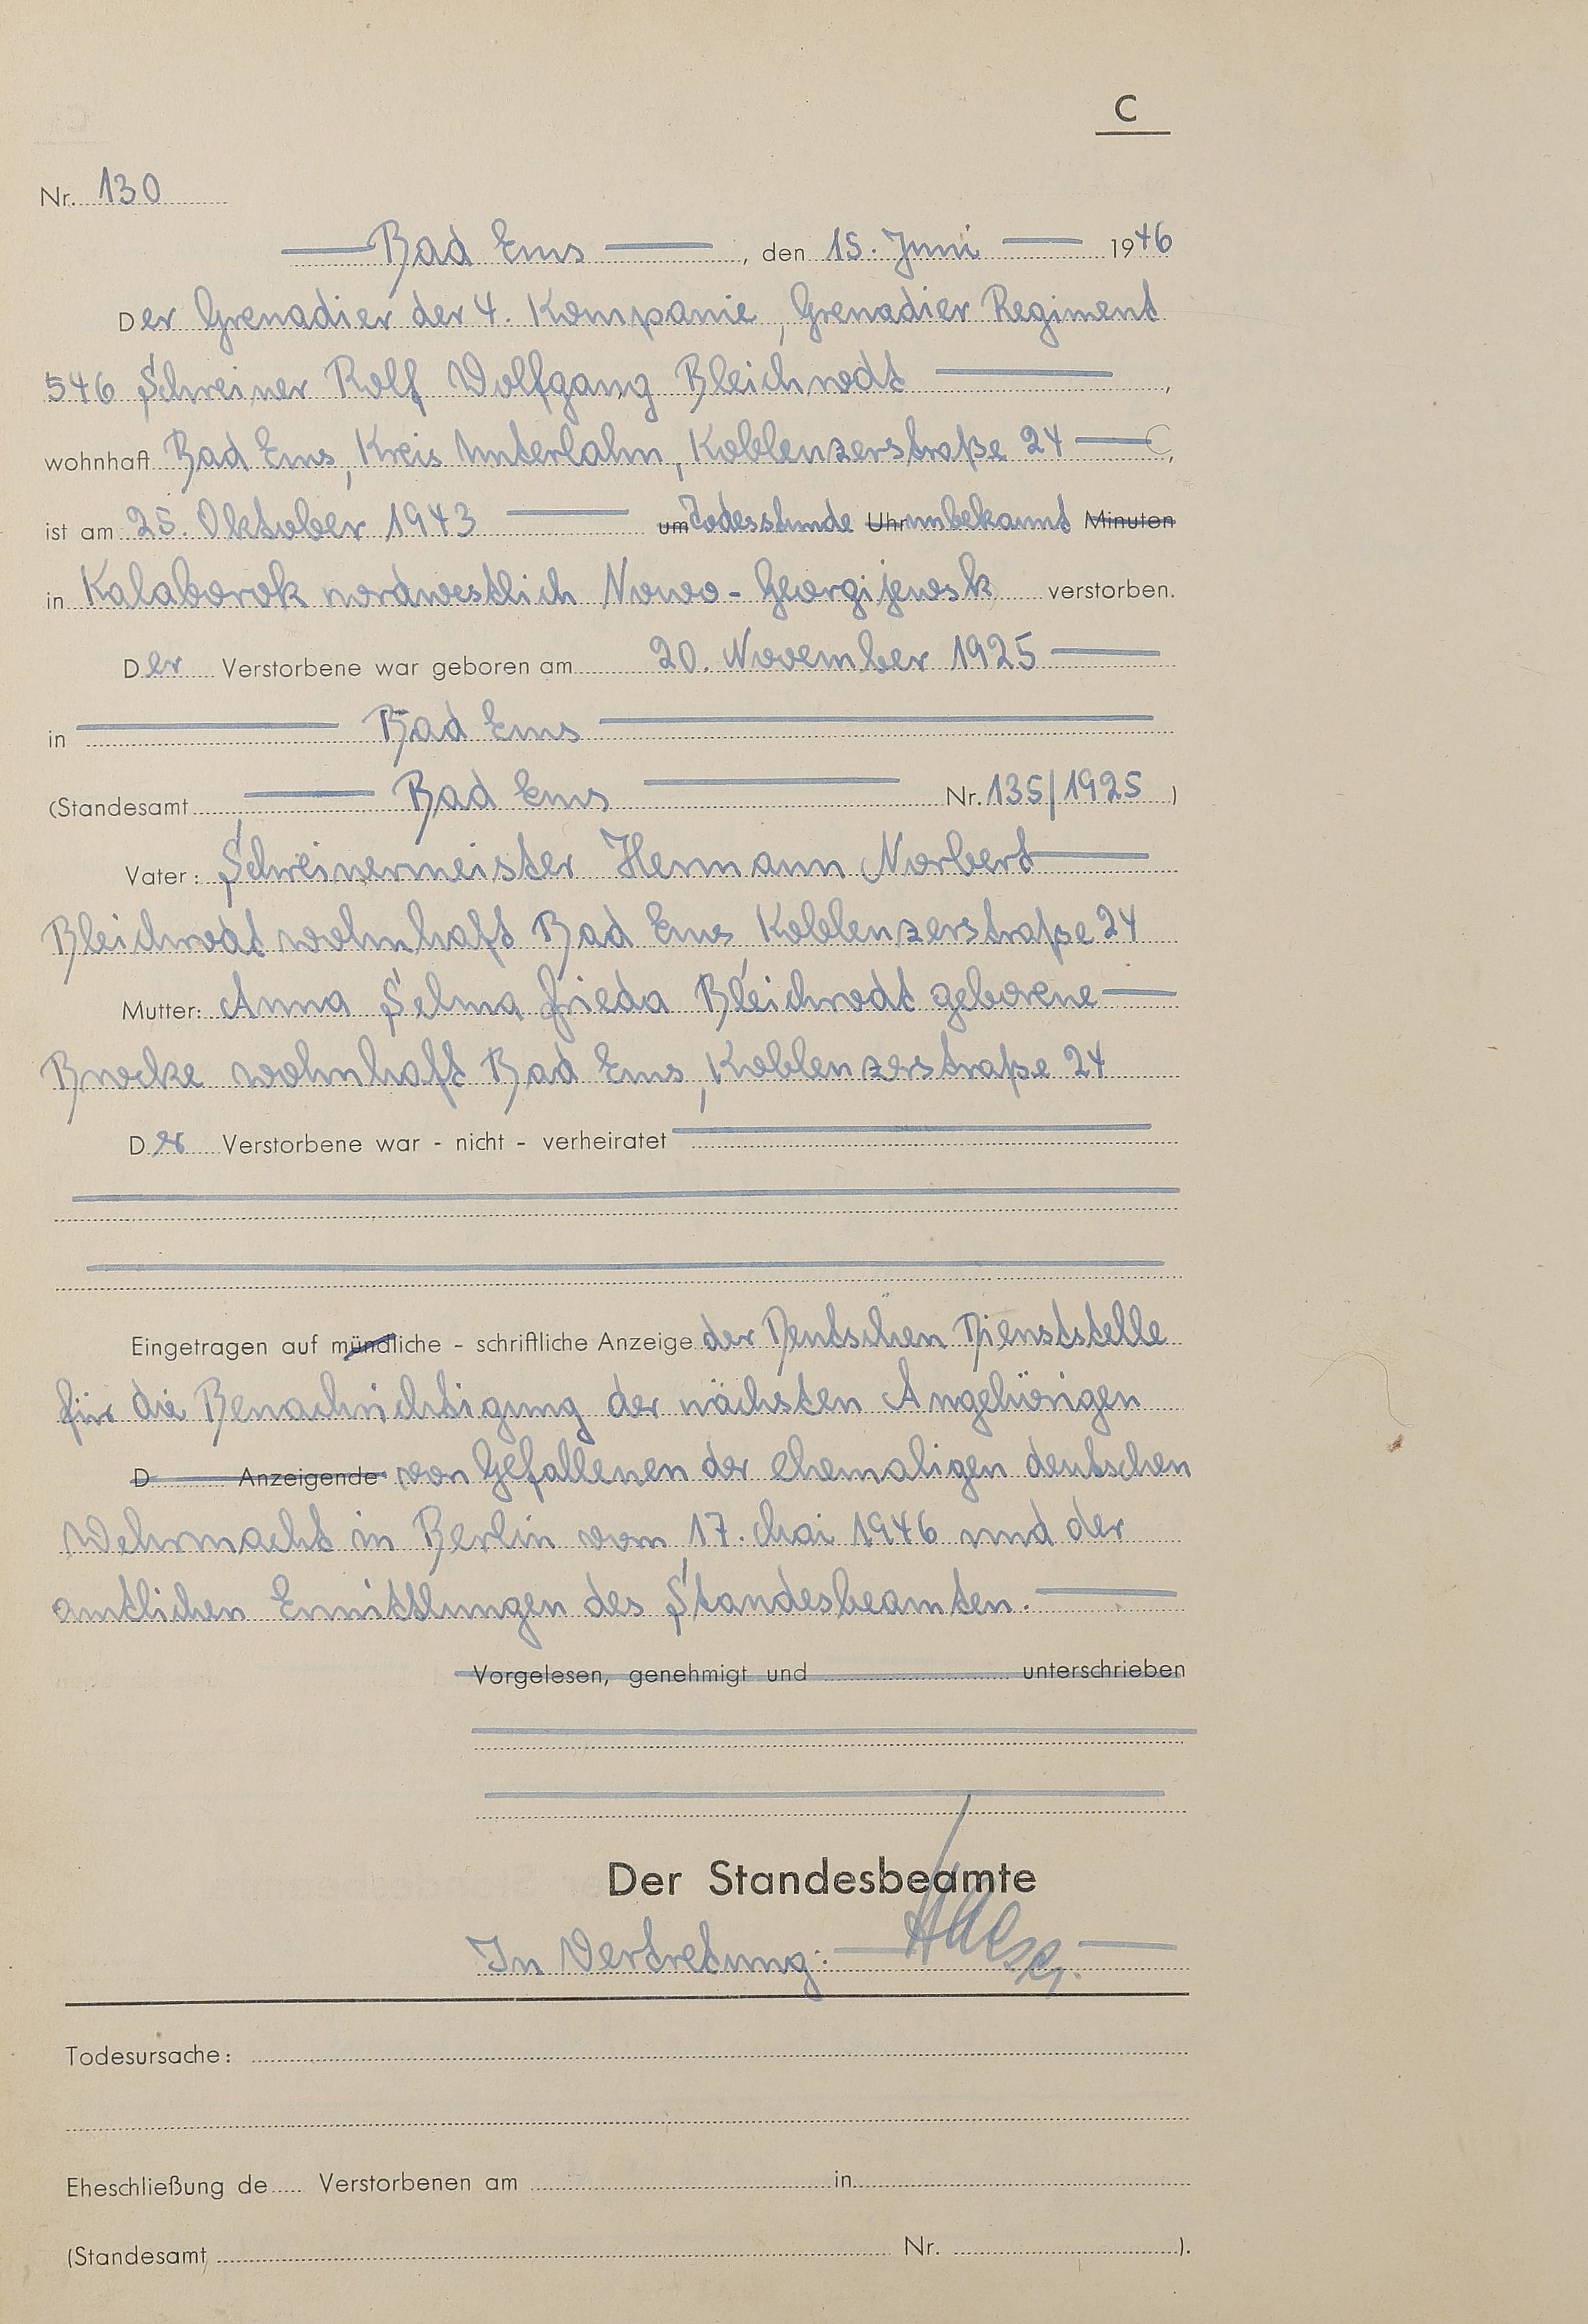 C
Nr. 130
Bad Ems, den 15. Juni 1946
Der Grenadier der 4. Kompanie, Grenadier Regiment
546 Schreiner Rolf Wolfgang Bleichrodt,
wohnhaft Bad Ems, Kreis Unterlahn, Koblenzerstraße 24,
ist am 25. Oktober 1943 um Todesstunde Uhr unbekannt Minuten
in Kalaborok nordwestlich Nowo-Georgijewsk verstorben.
Der Verstorbene war geboren am 20. November 1925
in Bad Ems
(Standesamt Bad Ems Nr. 135/1925)
Vater: Schreinermeister Hermann Norbert
Bleichrodt wohnhaft Bad Ems, Koblenzerstraße 24
Mutter: Anna Selma Frieda Bleichrodt geborene
wohnhaft Bad Ems, Koblenzerstraße 24
Der Verstorbene war - nicht - verheiratet
Eingetragen auf mündliche - schriftliche Anzeige der Deutschen Dienststelle
für die Benachrichtigung der nächsten Angehörigen
D Anzeigende von Gefallenen der ehemaligen deutschen
Wehrmacht in Berlin vom 17. Mai 1946 und der
amtlichen Ermittlungen des Standesbeamten.
Vorgelesen, genehmigt und unterschrieben
Der Standesbeamte
In Vertretung:
Todesursache:
Eheschließung de Verstorbenen am in
(Standesamt Nr. ).